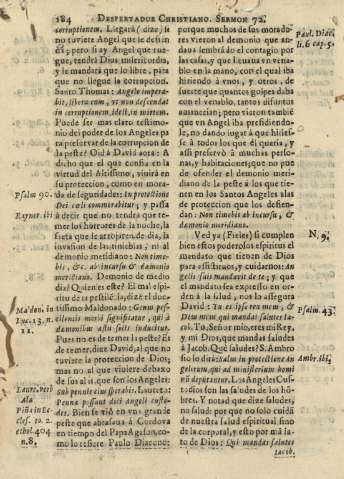 184 DESPERTADOR CHRISTIANO. SERMON 72.
corruptionem. Llegarà ( dize ) si
no tuviere Angel que le defien
da; pero si ay Angel que rue-
gue, tendrà Dios misericordia,
y le mandarà que lo libre, para
que no llegue la corrupcion.
Santo Thomas: Angelo impera-
bit, libera eum, vt non descendat
in corruptionem idest, in mortem.
Puede ser mas claro testimo-
nio del poder de los Angeles pa
ra preservar de la corrupcion de
la peste? Oid à David aora: A
dicho que el que confia en la
virtud del Altissimo, vivirà en
su proteccion, como en mora-
da de seguridades: In protectione
Dei cæli commorabitur; y passa
à decir que no tendrà que te-
mer los horrores de la noche, la
saeta que se arroja en dia, la
invasion de las tinieblas, ni al
demonio meridiano: Non time-
bis, &c. ab incursu & demonio
meridiano. Demonio de medio
dia? Quien es este? Es mal espi-
ritu de la pestilencia, dize el doc-
tissimo Maldonado: Genus pes-
tilentis morbi significatur, qui à
dæmonibus æstu solis inducitur.
Pues no es de temer la peste? Es
de temer, dize David, al que no
tuviere la proteccion de Dios;
mas no al que viviere debaxo
de sus alas, que son los Angeles:
Sub pennis eius sperabis. Laureto:
Penna possunt dici angeli custo-
des. Bien se viò en vna grande
peste que abrasava à Cordova
en tiempo del Papa Agaton, co-
mo lo escrive Paulo Diacono:
Psalm 90.
Rayner. ibi
Maldon. in
Luc. 13. n.
11.
Lauret. verb
Ala
Piña in Ec
cles. to. 2.
ethol. 404
n. 8.
porque muchos de los morado-
res vieron al demonio que an-
dava sembrando el contagio por
las casas, y que llevava vn vena-
blo en la mano, con el qual iba
hiriendo à vnos, y otros, de
suerte que quantos golpes daba
con el venablo, tantos difuntos
amanecian; pero vieron tambiè
que vn Angel iba presidiendo-
le, no dando lugar à que hiries-
se à todos los que èl queria, y
assi preservò à muchas perso-
nas, y habitaciones; que no pue
de ofender el demonio meri-
diano de la peste à los que tie-
nen en los Santos Angeles alas
de proteccion que los defien-
dan: Non timebis ab incursu, &
demonio meridiano.
Ved ya ( Fieles ) si cumplen
bien estos poderosos espiritus el
mandato que tienen de Dios
para assistirnos, y cuidarnos: An-
gelis suis mandavit de te; y que
el mandato sea expresso en or-
den à la salud, nos lo assegura
David: Tu es ipse rex meus, &
Deus meus qui mandas salutes Ia-
cob. Tu, Señor mio, eres mi Rey,
y mi Dios, que mandas saludes
à Jacob. Què saludes? S. Ambro
sio lo dirà: Salus in protectione An
gelorum, qui ad ministerium homi
nū deputantur. Los Angeles Cus-
todios son las saludes de los hō-
bres. Y notad que dize saludes;
no salud: por que no solo cuidā
de nuestra salud espiritual sino
de la corporal, y esto por mā da
to de Dios: Qui mandas salutes
Iacob.
Paul. Diac.
li. 6 cap. 5.
N. 9.
Psalm. 43.
Ambr. ibi,